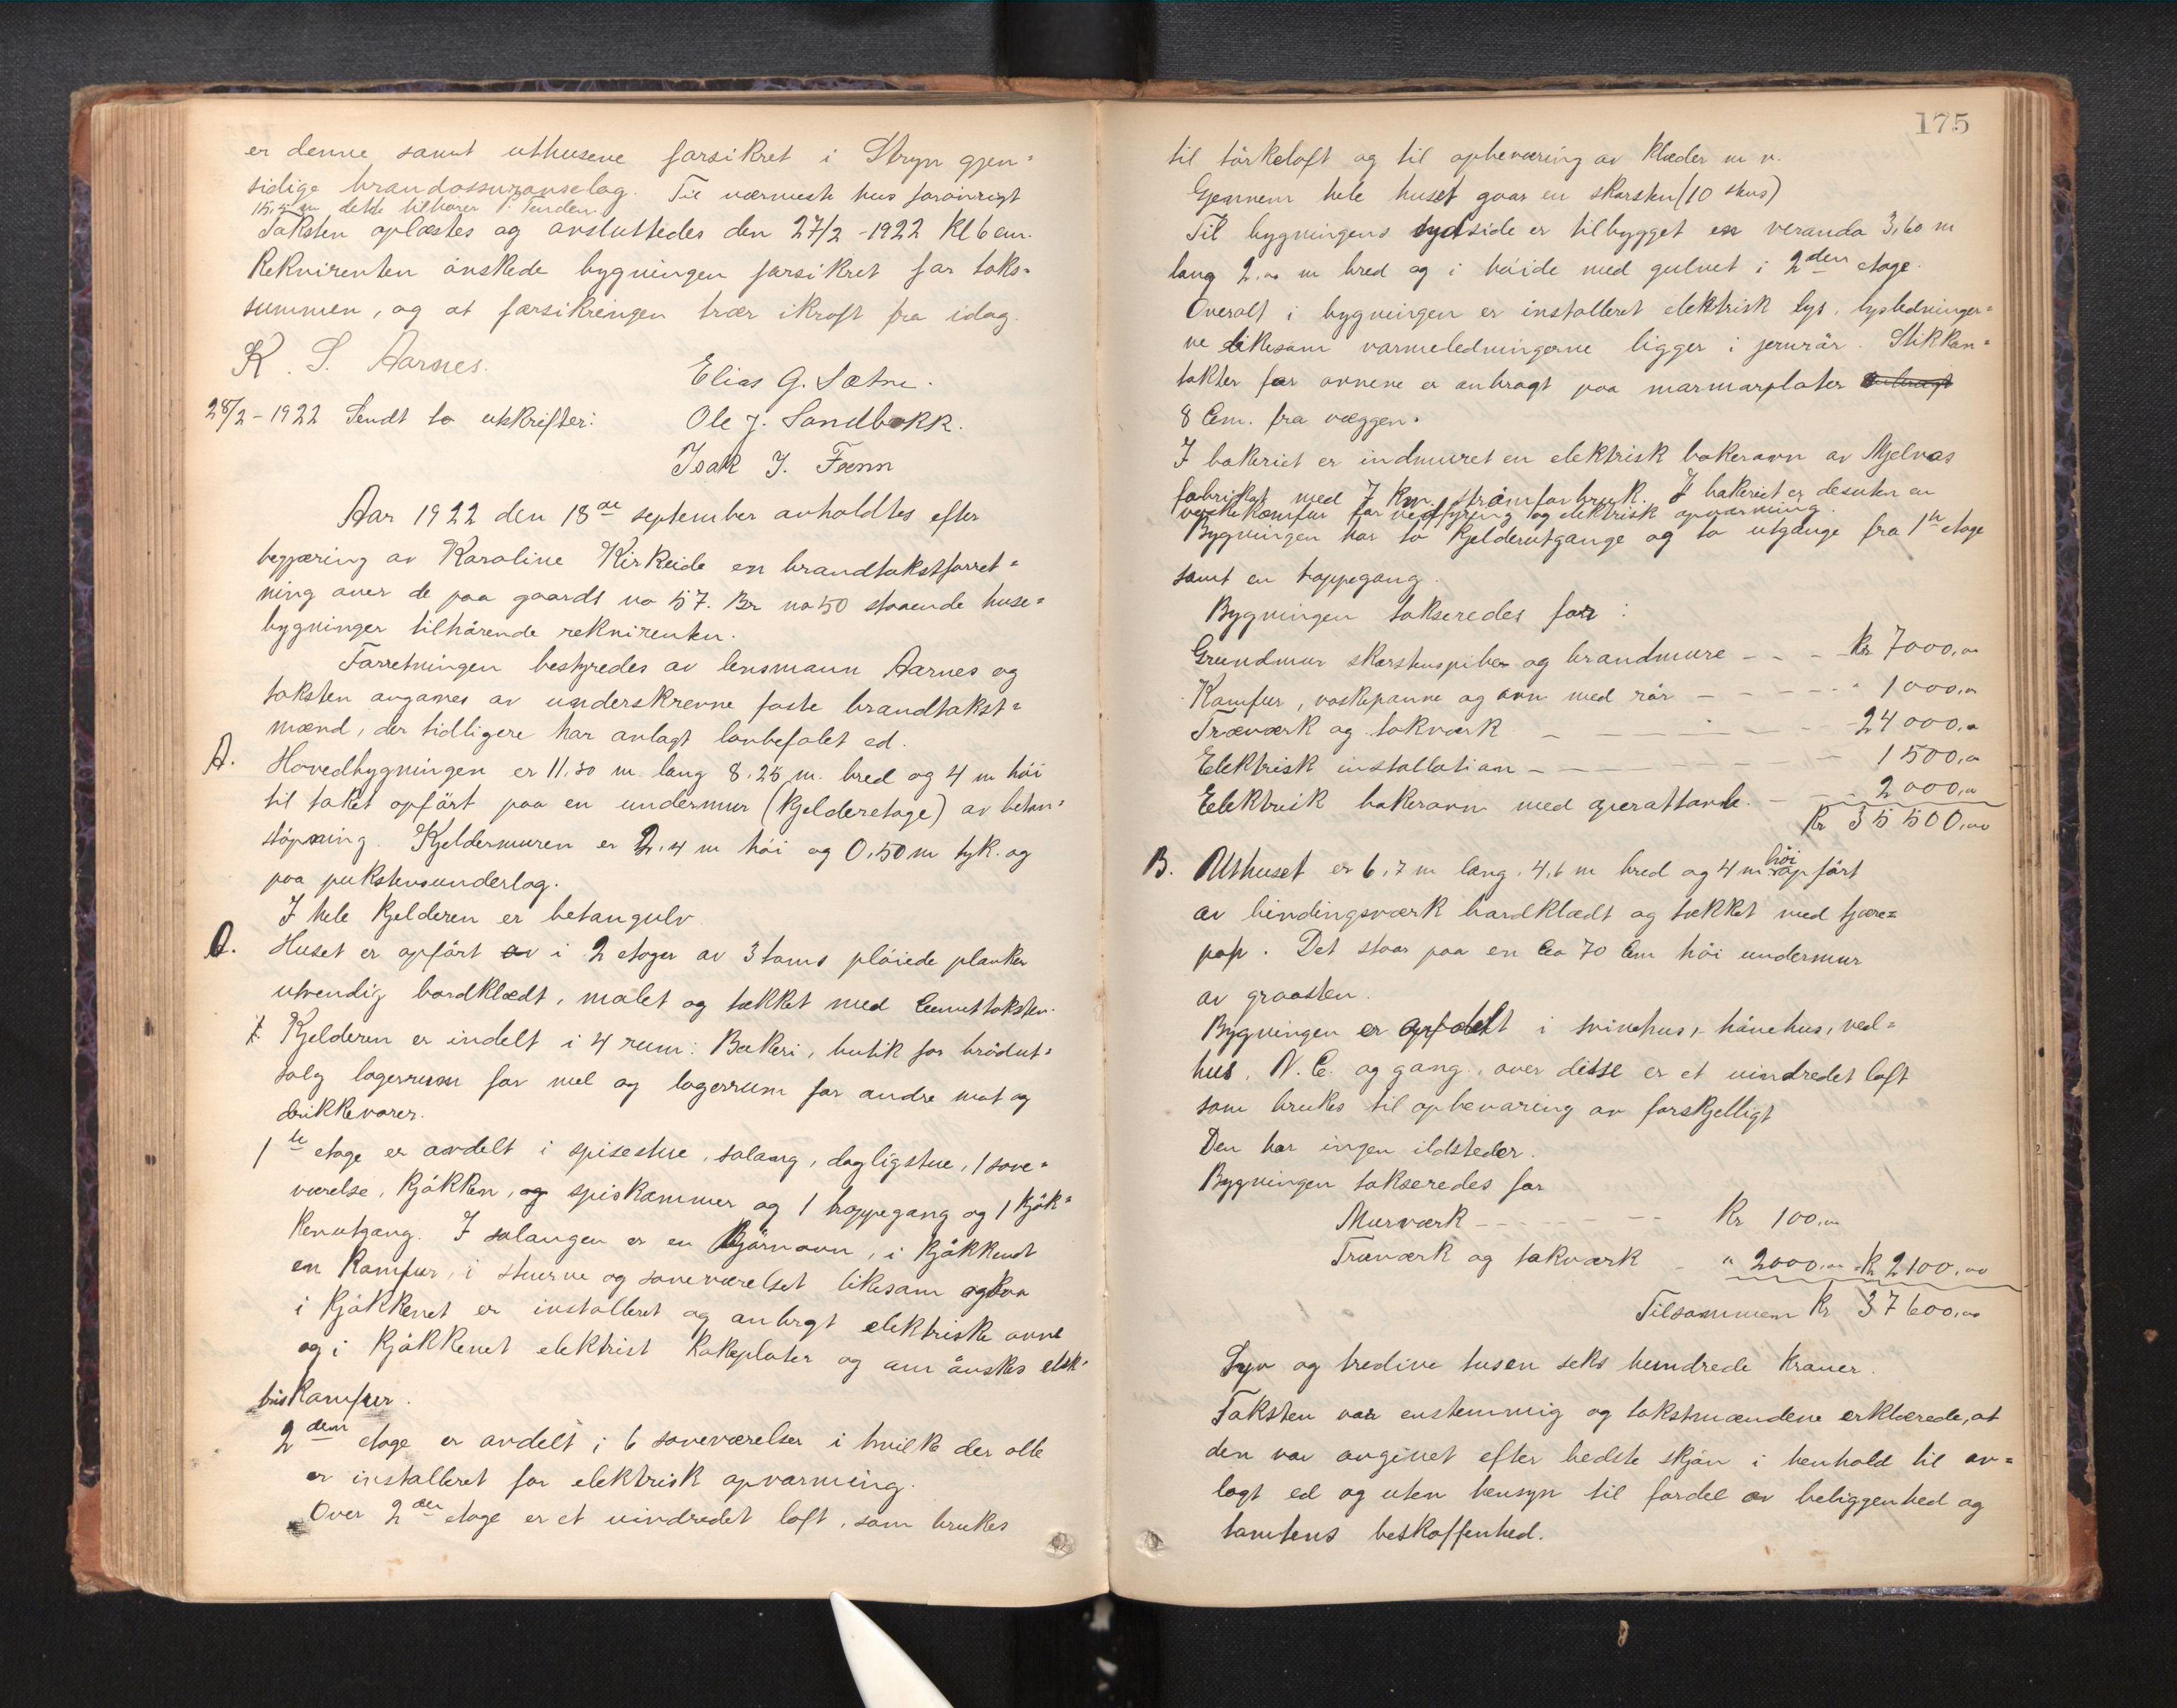 er denne samt uthusene forsikret i Stryn gjen-
sidige brandassuranselag. Til nærmeste hus forövrigt
15,5 m dette tilhører P. Tenden.
Taksten oplæstes og avsluttedes den 27/2 - 1922 kl 6 em.
Rekvirenten önskede bygningen forsikret for taks-
summen, og at forsikringen trær ikraft fra idag.
K. S. Aarnes.
Elias G. Sætre.
28/2 - 1922 Sendt to utskrifter:
Ole J. Sandbakk.
Isak J.
Aar 1922 den 18de september avholdtes efter
begjæring av Karoline Kirkeide en brandtakstforret-
ning over de paa gaards no 57. Br no 50 staaende huse-
bygninger tilhörende rekvirenten.
Forretningen bestyredes av lensmann Aarnes og
taksten avgaves av underskrevne faste brandtakst-
mænd, der tidligere har avlagt lovbefalet ed.
A. Hovedbygningen er 11,30 m lang 8,25 m. bred og 4 m höi
til taket opfört paa en undermur (kjelderetage) av beton-
stöpning. Kjeldermuren er 2,4 m höi og 0,50 m tyk og
paa pukstensunderlag.
I hele kjelderen er betongulv
Huset er opfört av i 2 etager av 3 toms plöiede planker
utvendig bordklædt, malet og tækket med Cementtaksten.
Kjelderen er indelt i 4 rum: Bakeri, butik for brödut-
salg lagerrum for mel og lagerrum for andre mat og
drikkevarer.
1ste etage er avdelt i spisestue, salong, dagligstue, 1 sove-
værelse, kjökken, og spiskammer og 1 trappegang og 1 kjök-
kenutgang. I salongen er en Bjørnovn, i kjökkenet
en komfur, i stuerne og soveværelset likesom ogsaa
i kjökkenet er installeret og anbragt elektriske ovne
og i kjökkenet elektrisk kokeplater og om önskes elek-
trisk komfur.
2den etage er avdelt i 6 soveværelser i hvilke der alle
er installeret for elektrisk opvarming.
Over 2den etage er et uindredet loft, som brukes
175
til törkeloft og til opbevaring av klæder m v.
Gjennem hele huset gaar en skorsten (10 skus)
Til bygningens sydside er tilbygget en veranda 3,60 m
lang 2.00 m bred og i höide med gulvet i 2den etage.
Overalt i bygningen er installeret elektrisk lys, lysledninger-
ne likesom varmeledningerne ligger i jernrör. Stikkon-
takter for ovnene er anbragt paa marmorplater anbragt
8 Cm. fra væggen.
I bakeriet er indmuret en elektrisk bakerovn av Mjelvas
fabrikat med 7 Kw. strömforbruk. I bakeriet er desuten en
komfur for vedfyring og elektrisk opvarming.
Bygningen har to kjelderutgange og to utgange fra 1ste etage
samt en trappegang.
Bygningen takseredes for:
Grundmur skorstenspiber og brandmure - - - Kr 7000,00
Komfur, vaskepanne og ovn med rör - - - " 1000,00
Træværk og takværk - - - 24000,00
Elektrisk installation - - - 1500,00
Elektrisk bakerovn med operattank. - - - 2000,00
Kr 35500,00
B. Uthuset er 6,7 m lang, 4,6 m bred og 4 m höi opfört
av bindingsværk bordklædt og tækket med tjære-
pap. Det staar paa en Ca 70 Cm höi undermur
av graasten.
Bygningen er opdelt i svinehus, hönehus, ved-
hus, V. C. og gang, over disse er et uindredet loft
som brukes til opbevaring av forskjelligt
Den har ingen ildsteder.
Bygningen takseredes for
Murværk - - - - Kr 100,00
Træværk og takværk - " 2000,00 Kr 2100,00
Tilsammen Kr 37600,00
Syv og tredive tusen seks hundrede kroner.
Taksten var enstemmig og takstmændene erklærede, at
den var avgivet efter bedste skjön i henhold til av-
lagt ed og uten hensyn til fordel av beliggenhed og
tomtens beskaffenhed.